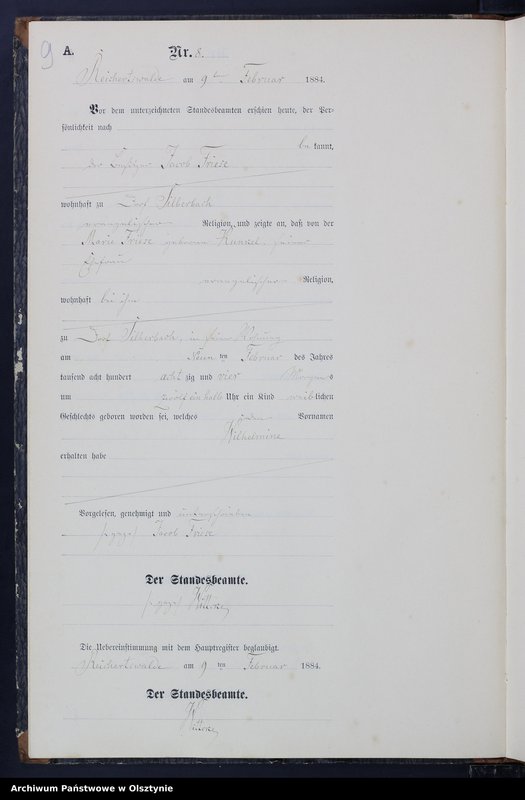 9
A. Nr. 8.
Reichertswalde am 9ten Februar 1884.
Vor dem unterzeichneten Standesbeamten erschien heute, der Per-
sönlichkeit nach
be kannt,
der Jacob Friese
wohnhaft zu Dorf Silberbach
evangelischer Religion, und zeigte an, daß von der
Marie Friese geborene Kunkel, seiner
Ehefrau
evangelischer Religion,
wohnhaft bei ihm
zu Dorf Silberbach, in seiner Wohnung
am Neun ten Februar des Jahres
tausend acht hundert acht zig und vier Morgens
um zwölf ein halb Uhr ein Kind weiblichen
Geschlechts geboren worden sei, welches den Vornamen
Wilhelmine
erhalten habe
Vorgelesen, genehmigt und unterschrieben
(gez.) Jacob Friese
Der Standesbeamte.
(gez.)
Die Uebereinstimmung mit dem Hauptregister beglaubigt.
Reichertswalde am 9 ten Februar 1884.
Der Standesbeamte.
Archiwum Państwowe w Olsztynie